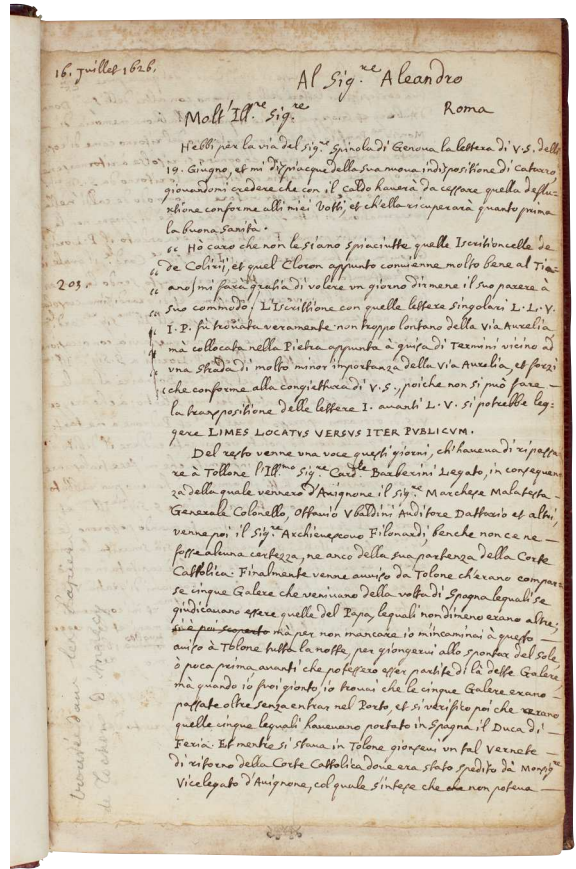 16. Juillet 1626.
Al Sig.re Aleandro
Roma
Molt' Ill.re Sig.re
Hebbi per la via del Sig.re Spinola di Genova la lettera di V.S. delli
19. Giugno, et mi dispiacque della sua nuova indispositione di Catarro,
giovandomi credere che con il Caldo haverà da cessare quella deflu-
xtione conforme alli miei Votti, et ch'ella ricuperarà quanto prima
la buona sanità.
Hò caro che non le siano spiaciutte quelle Iscrittioncelle de
de Colirii, et quel Cloron appunto conviene molto bene al
203.
ano, mi farà gratia di volere un giorno dirmene il suo parere à
suo commodo. L'Iscrittione con quelle lettere singolari L. L. V.
I. P. fù trovata veramente non troppo lontano della Via Aurelia
mà collocata nella Pietra appunta à guisa di Termini vicino ad
una strada di molto minor importanza della Via Aurelia, et forzi
che conforme alla congiettura di V.S., poiche non si può fare
la transpositione delle lettere I. avanti L. V. si potrebbe leg-
gere LIMES LOCATVS VERSVS ITER PVBLICVM.
Del resto venne una voce questi giorni, ch'haveva di ripassa-
re à Tollone l'Ill.mo Sig.re Card.le Barberini Legato, in consequen
za della quale vennero d'Avignone il Sig.re Marchese Malatesta
Generale Colonello, Ottavio Vbaldini Auditore Dattario et altri
venne poi il Sig.re Archivescovo Filonardi, benche non ce ne
fosse alcuna certezza, ne anco della sua partenza della Corte
Cattolica. Finalmente venne avviso da Tolone ch'erano compar
se cinque Galere che venivano della volta di Spagna lequali se
giudicavano essere quelle del Papa, lequali nondimeno erano altre;
si è poi scoperto mà per non mancare io m'incaminai à questo
aviso à Tolone tutta la notte, per giongervi allo spontar del Sole
ò poca prima avanti che potessero esser partite di là dette Galere,
mà quando io fuoi gionto, io trovai che le cinque Galere erano
passate oltre senza entrar nel Porto, et si verificò poi che erano
quelle cinque lequali havevano portato in Spagna il Duca di
Feria. Et mentre si stava in Tolone gionse un tal Vernete
di ritorno della Corte Cattolica dove era stato spedito da Monsig.re
Vicelegato d'Avignone, col quale s'intese che non poteva
trouvée dans les papiers
de Tochon d'Annecy